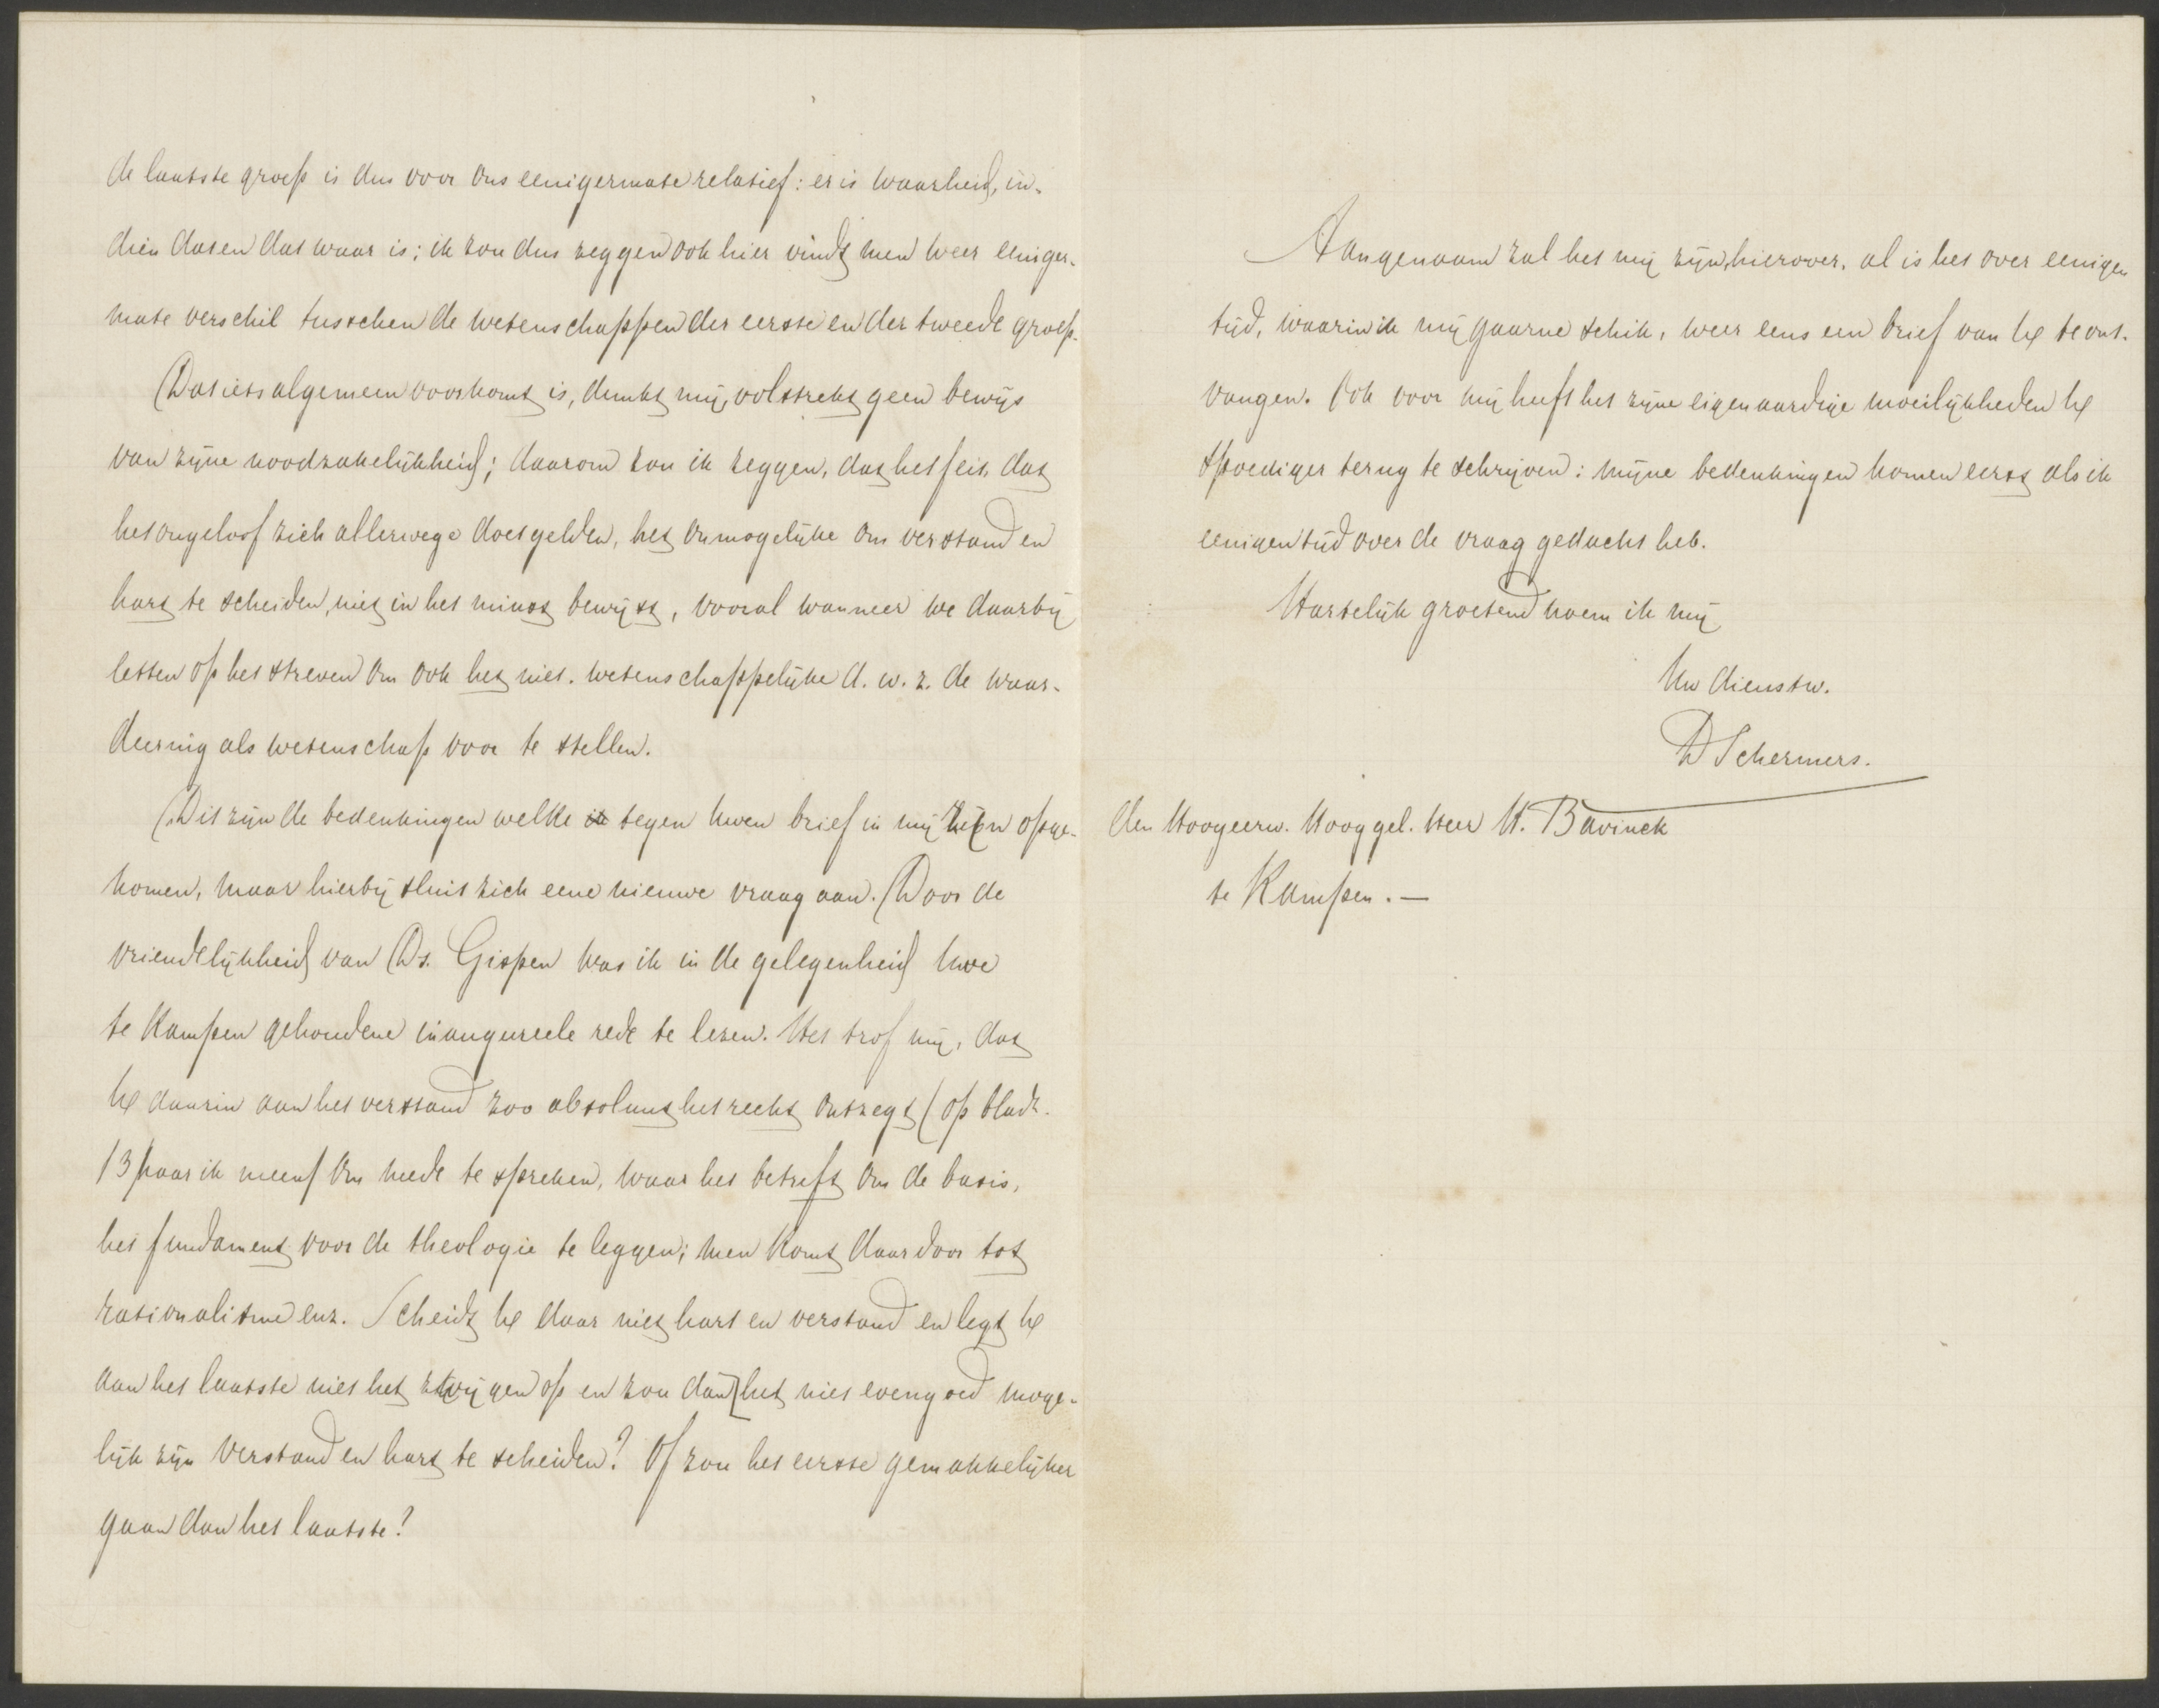 de laatste groep is dus voor ons eenigermate relatief: er is waarheid, in-
dien dat en dat waar is; ik zou dus zeggen ook hier vindt men weer eeniger-
mate verschil tusschen de wetenschappen der eerste en der tweede groep.
Dat iets algemeen voorkomt is, dunkt mij, volstrekt geen bewijs
van zijne noodzakelijkheid; daarom zou ik zeggen, dat het feit, dat
het ongeloof zich allerwege doet gelden, het onmogelijke om verstand en
hart te scheiden, niet in het minst bewijst, vooral wanneer we daarbij
letten op het streven om ook het niet-wetenschappelijke d.w.z. de waar-
deering als wetenschap voor te stellen.
Dit zijn de bedenkingen welke tegen Uwen brief in mij zijn opge-
komen, maar hierbij sluit zich eene nieuwe vraag aan. Door de
vriendelijkheid van Ds. Gispen was ik in de gelegenheid Uwe
te Kampen gehoudene inaugureele rede te lezen. Het trof mij, dat
U daarin aan het verstand zoo absoluut het recht ontzegt (op bladz.
13 naar ik meen) om mede te spreken, waar het betreft om de basis,
het fundament voor de theologie te leggen; men komt daardoor tot
rationalisme enz. Scheidt U daar niet hart en verstand en legt U
aan het laatste niet het zwijgen op en zou dan het niet evengoed moge-
lijk zijn verstand en hart te scheiden? Of zou het eerste gemakkelijker
gaan dan het laatste?
Aangenaam zal het mij zijn, hierover, al is het over eenigen
tijd, waarin ik mij gaarne schik, weer eens een brief van U te ont-
vangen. Ook voor mij heeft het zijne eigenaardige moeilijkheden U
spoediger terug te schrijven: mijne bedenkingen komen eerst als ik
eenigen tijd over de vraag gedacht heb.
Hartelijk groetend noem ik mij
Uw dienstw.
D Schermers.
den Hoogeerw. Hooggel. Heer H. Bavinck
te Kampen. —